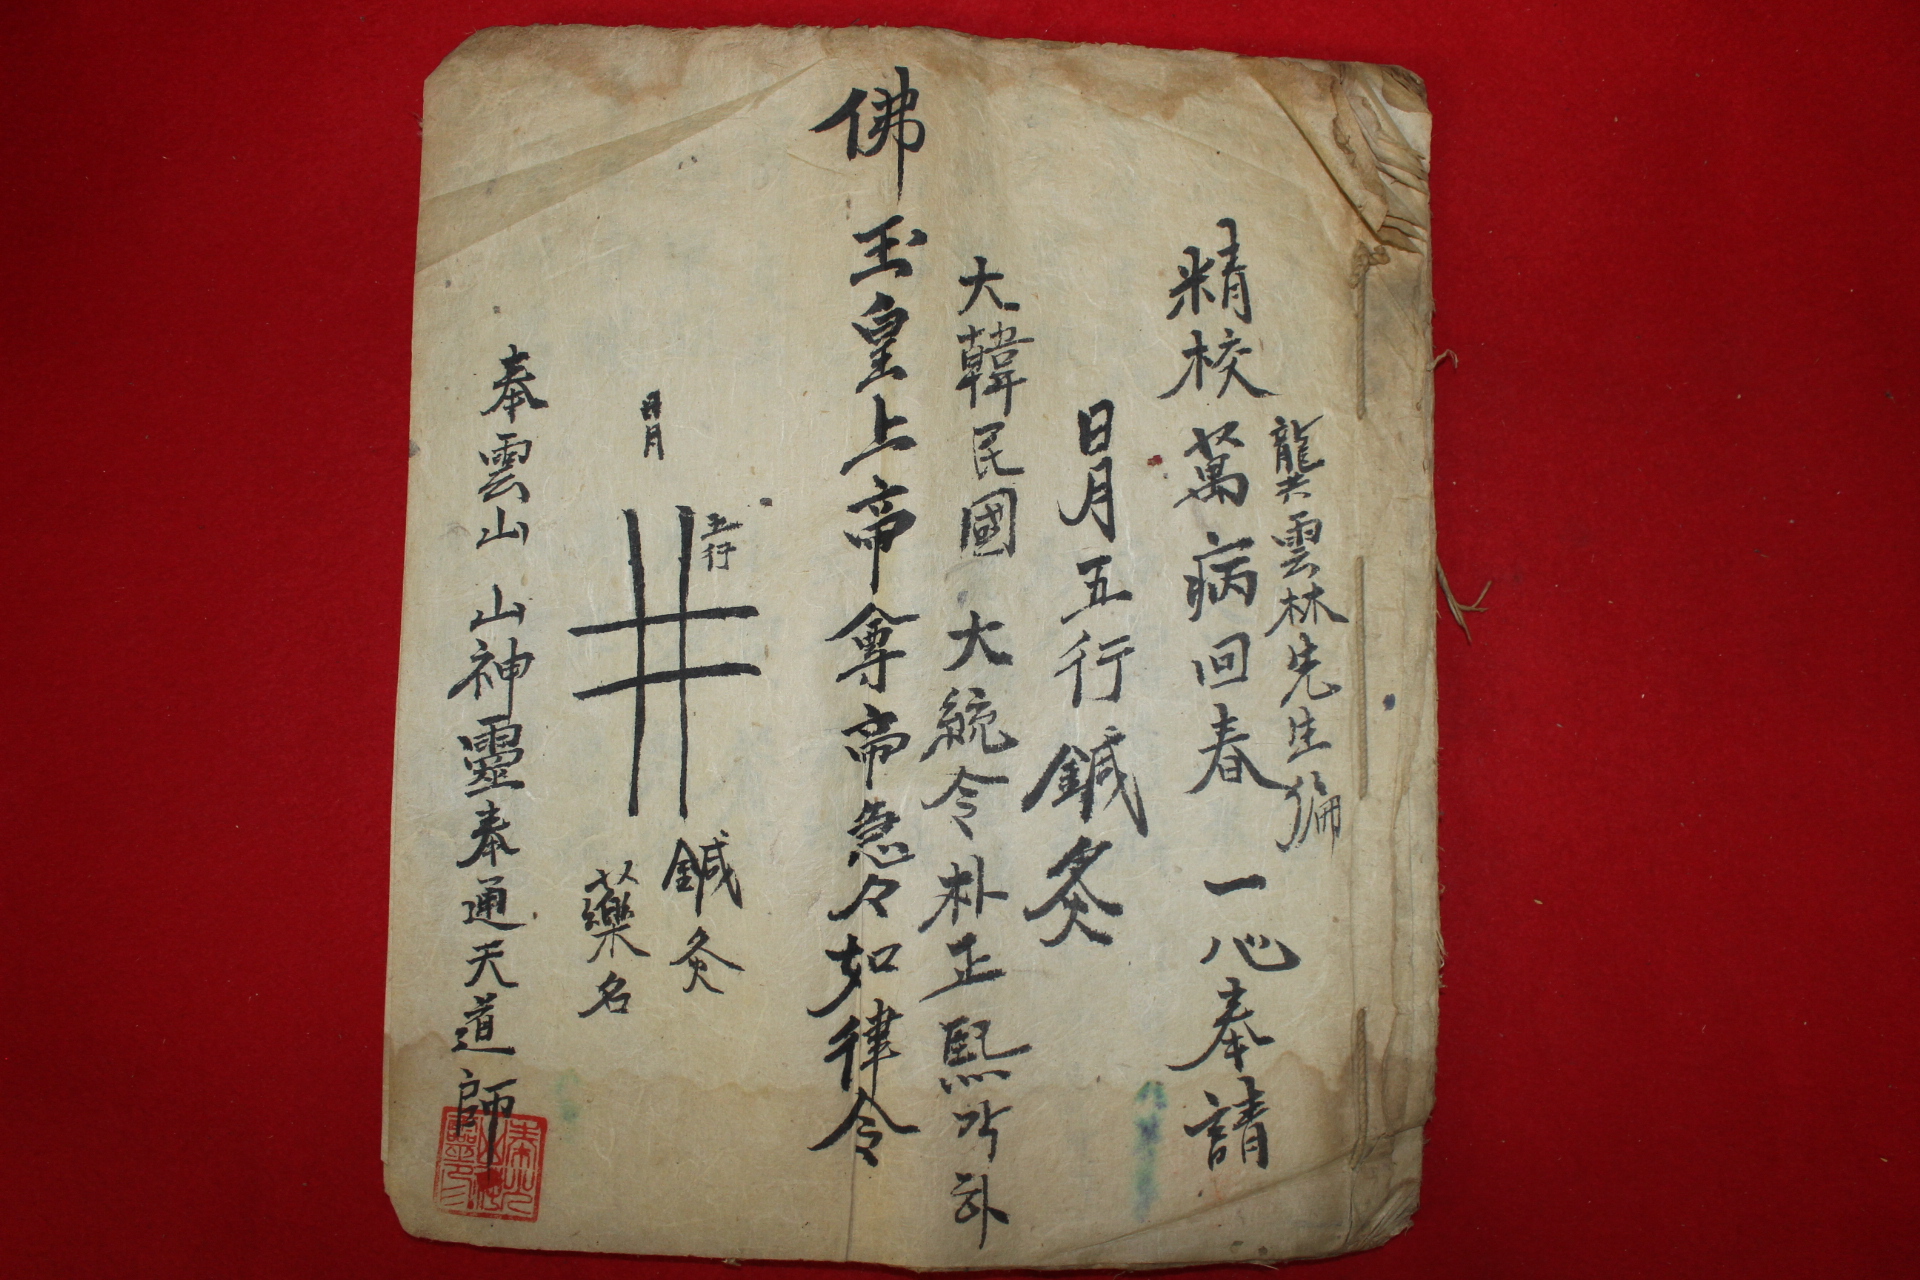 龔雲林先生編
精校萬病回春 一心奉請
日月五行鍼灸
大韓民國 大統令朴正熙각하
佛玉皇上帝尊帝急々如律令
五行 鍼灸
日月 藥名
奉雲山 山神靈奉通天道師